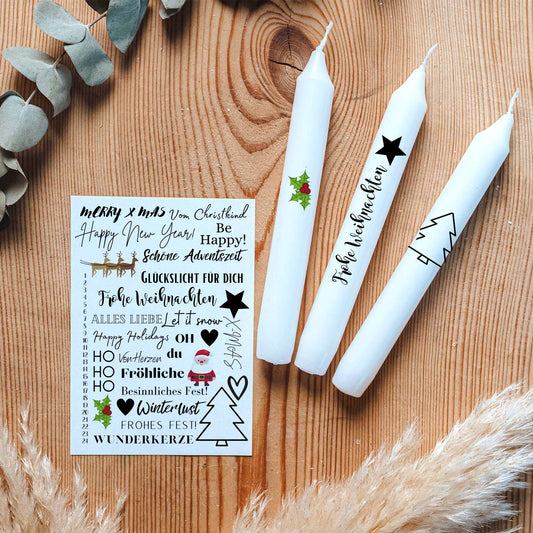 MERRY X MAS
Vom Christkind
Happy New Year!
Be
Happy!
Schöne Adventszeit
GLÜCKSLICHT FÜR DICH
Frohe Weihnachten
ALLES LIEBE
Let it snow
Happy Holidays
OH
XMAS
HO
HO
HO
Von Herzen
du
Fröhliche
Besinnliches Fest!
Winterlust
FROHES FEST!
WUNDERKERZE
1
2
3
4
5
6
7
8
9
10
11
12
13
14
15
16
17
18
19
20
21
22
23
24
Frohe Weihnachten